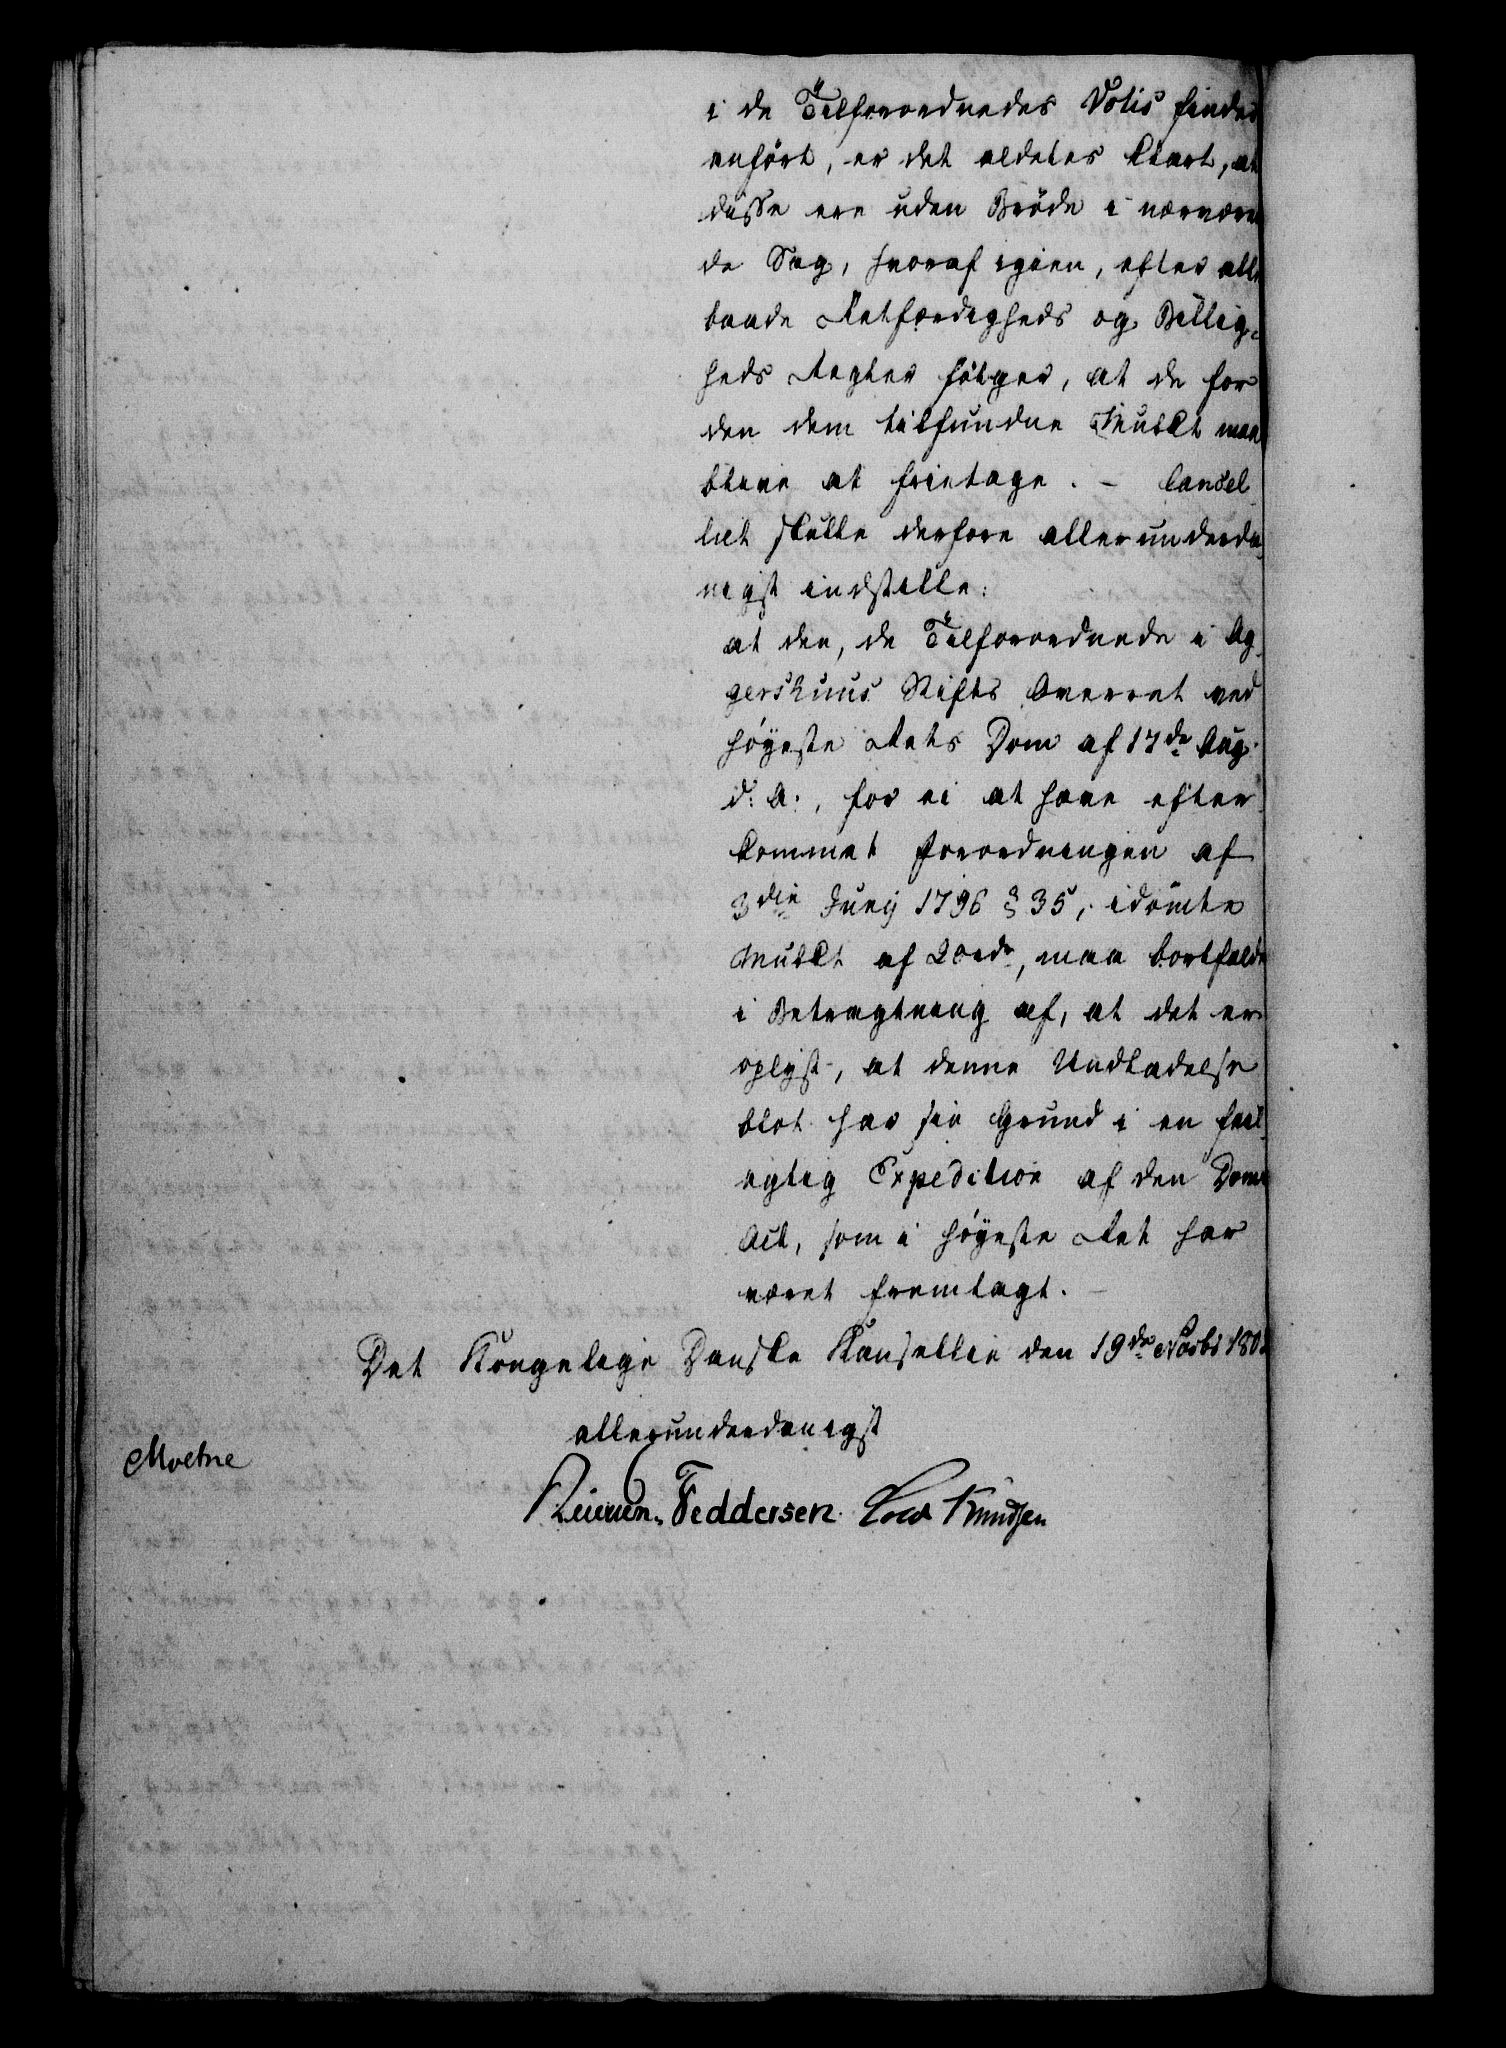 i de Tilforordnedes Votis findes
anført, er det aldeles klart, at
disse ere uden Brøde i nærværen
de Sag, hvoraf igien, efter alle
baade Retfærdigheds og Billig-
heds Regler følger, at de for
den dem tilfundne Mulkt maa
blive at fritage. – Cancel
liet skulle derfore allerunderda-
nigst indstille:
at den, de Tilforordnede i Ag-
gershuus Stifts Overret ved
Høyeste Rets Dom af 17de Aug.
d: A:, for ei at have efter
kommet Forordningen af
3die Junij 1796 § 35, idømte
Mulkt af 20rdr, maa bortfalde
i Betragtning af, at det er
oplyst, at denne Undladelse
blot har sin Grund i en feil-
agtig Expedition af den Doms
Act, som i Høyeste Ret har
været fremlagt. –
Det Kongelige Danske Kansellie den 19de Novbr 180
allerunderdanigst
Moltke
Feddersen. Knudsen